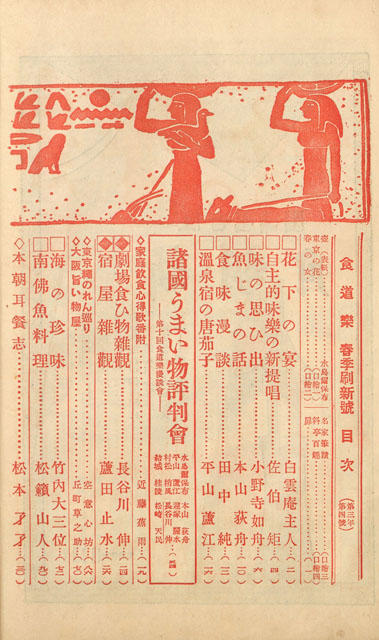 食道樂 春季刷新號 目次
(第三年第四號)
壺(表紙) 永島眉保布
東京の花 (口繪一)
春の女 (口繪二)
名家筆蹟 (口繪三)
料亭百趣 (口繪四)
花下の宴 白雲庵主人 (二)
自主的味樂の新提唱 佐伯矩 (四)
味の思ひ出 小野寺如舟 (六)
魚じまの話 本山荻舟 (一〇)
食味漫談 田中純
溫泉宿の唐茄子 平山蘆江
諸國うまい物評判會
―第十回食道樂漫談會―
本山荻舟
平山蘆江
長谷川伸
松崎天民
家庭飲食心得歌番附 近藤蕉雨
劇場食ひ物雜觀 長谷川伸
宿屋雜觀 蘆田止水
東京繩のれん巡り 空意心坊
大阪旨い物屋 丘町草之助
海の珍味 竹內大三位
南佛魚料理 松籟山人
本朝耳餐志 松本才才